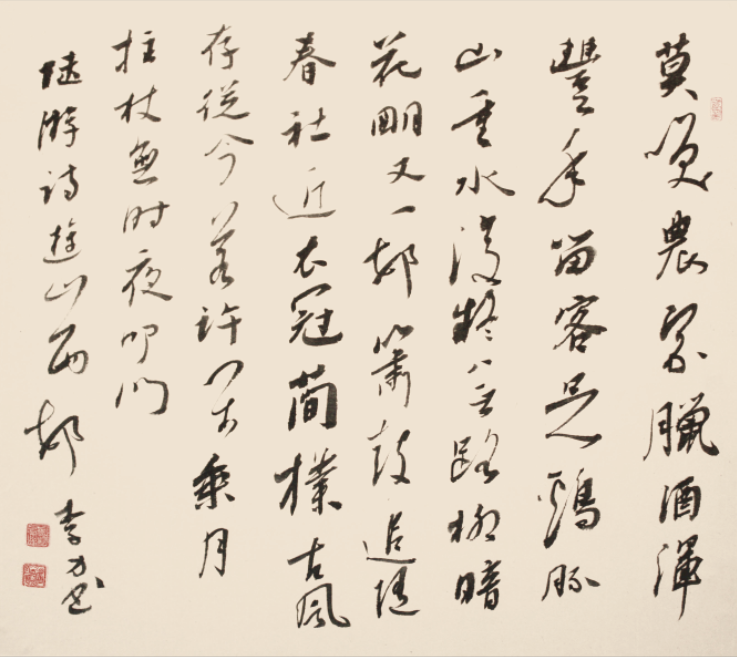 莫笑農家臘酒渾
豐年留客足鷄豚
山重水複疑無路柳暗
花明又一邨簫鼓追隨
春社近衣冠簡樸古風
存從今若許閒乘月
拄杖無時夜叩門
陸游詩遊山西邨 李